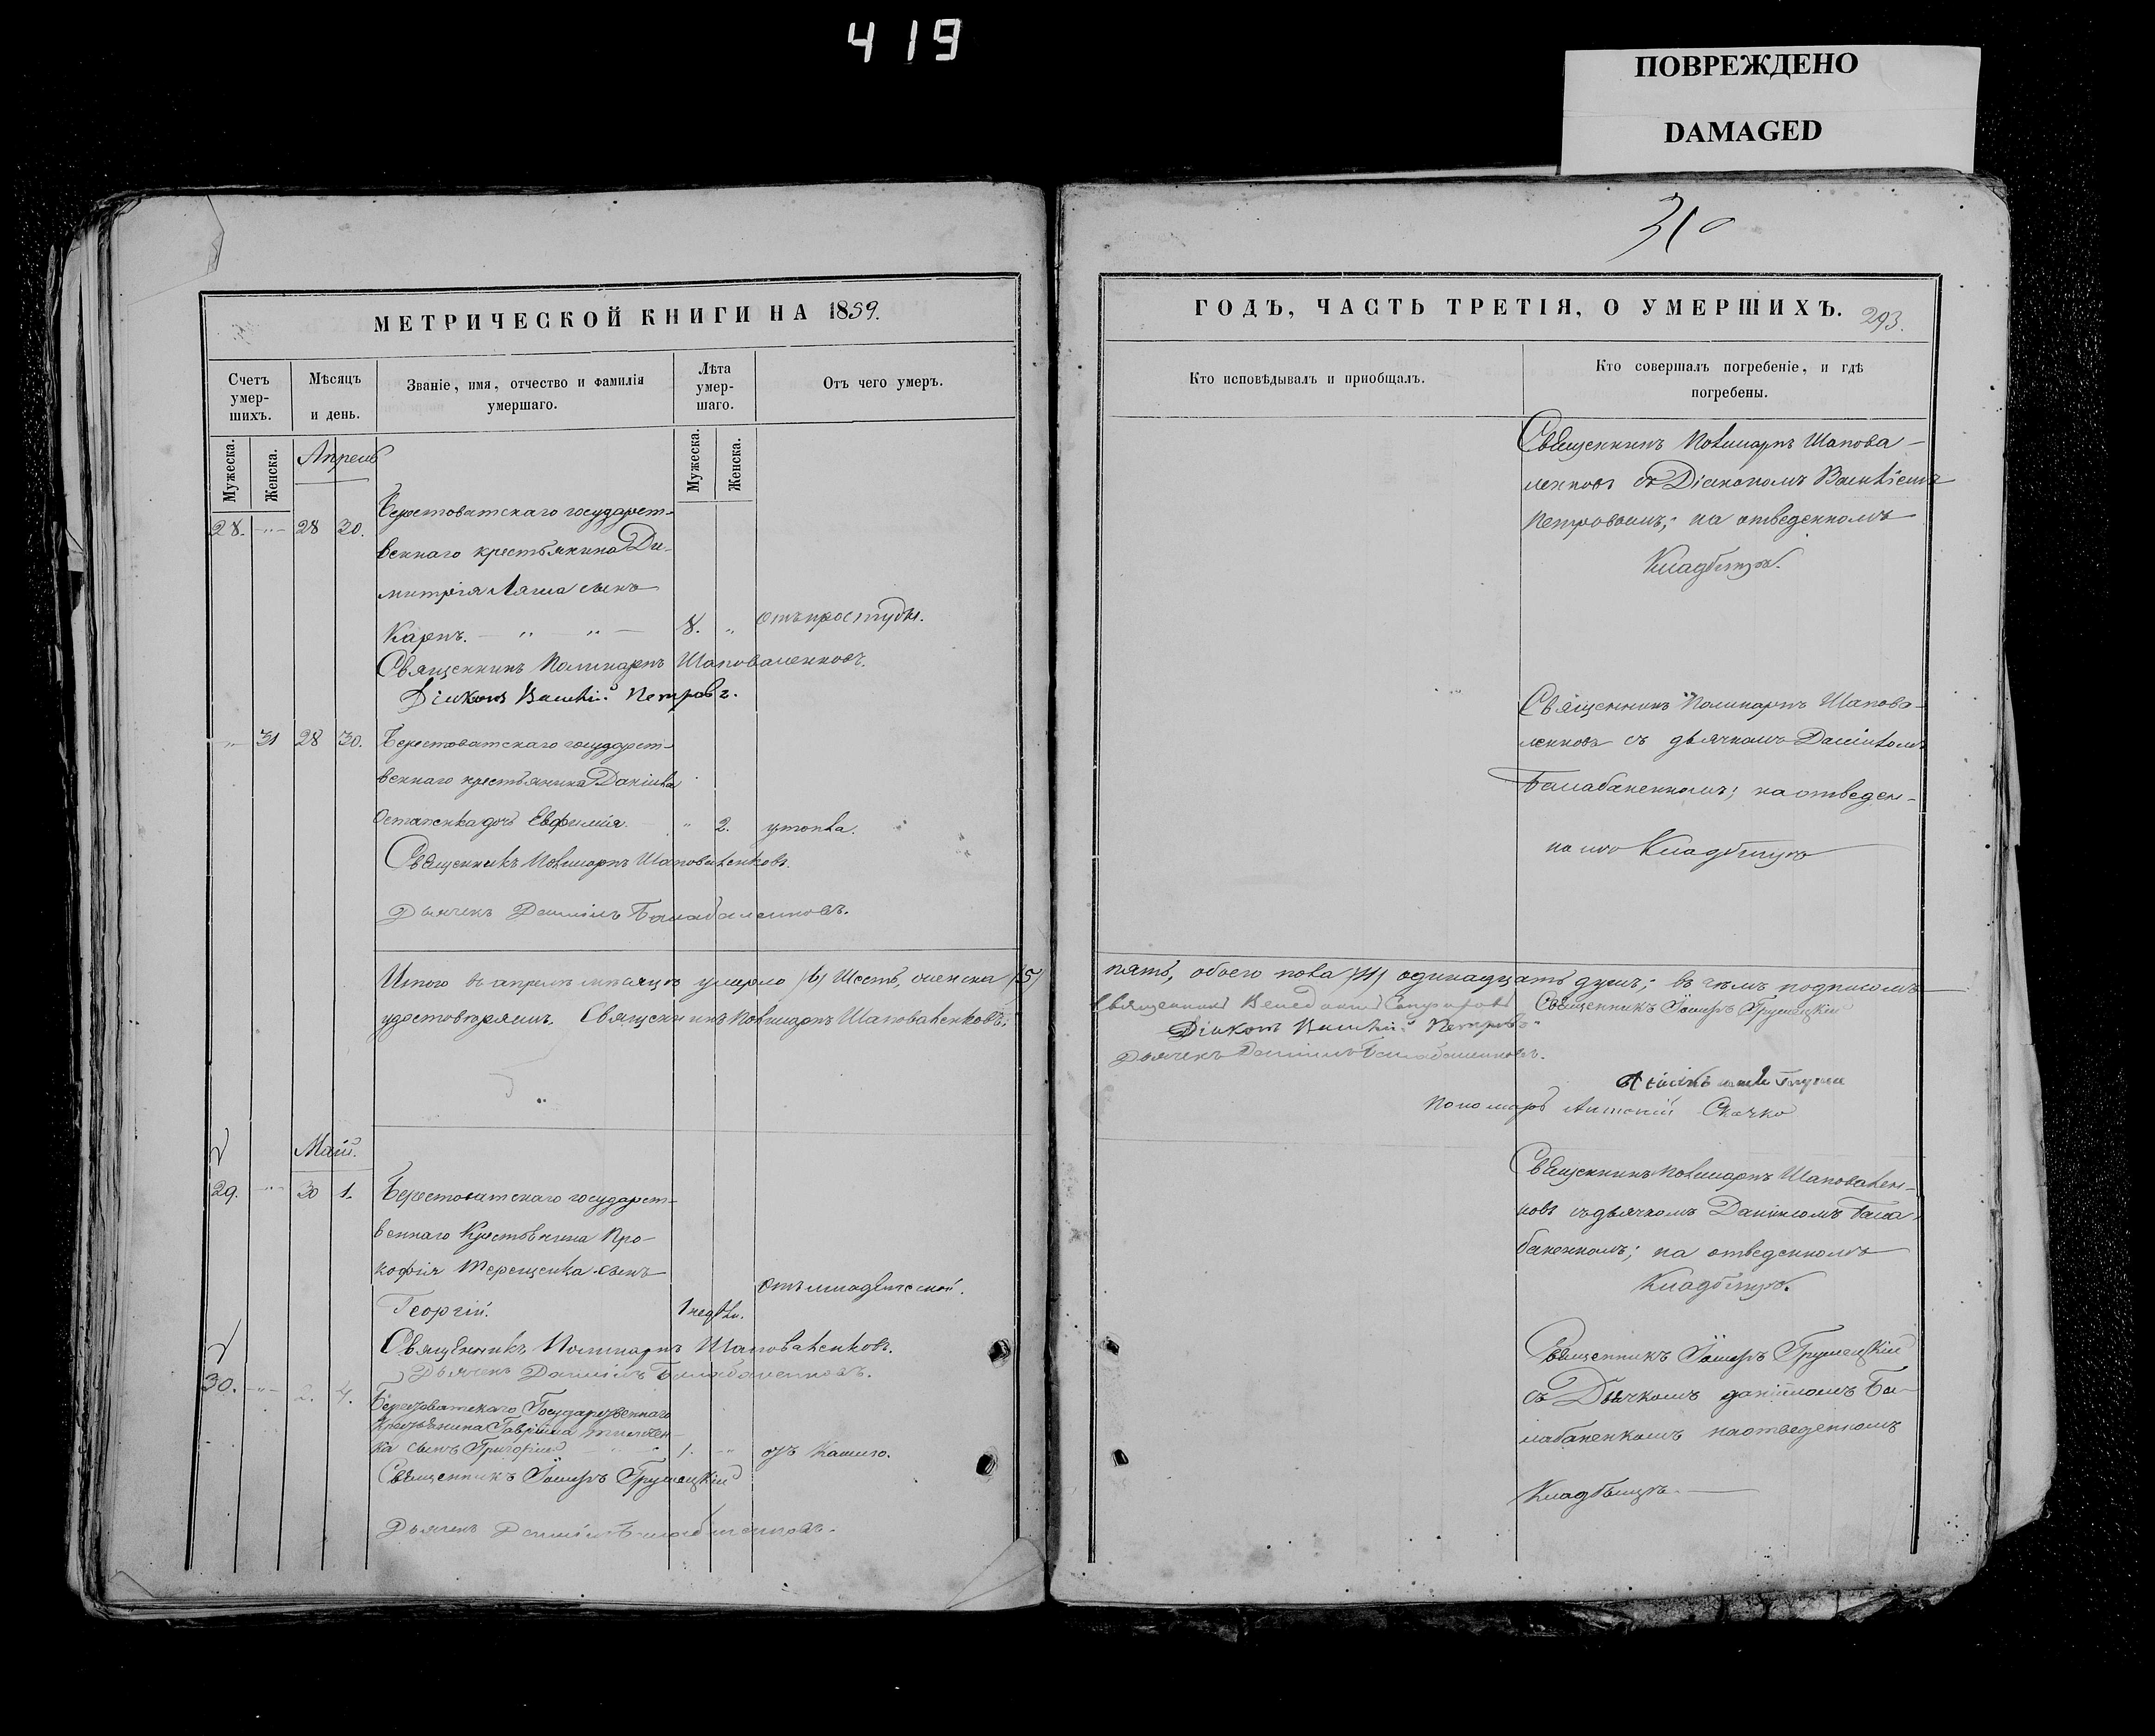 419
ПОВРЕЖДЕНО
DAMAGED
310
МЕТРИЧЕСКОЙ КНИГИ НА 1859.
Счетъ умер-шихъ.
Мѣсяцъ и день.
Званіе, имя, отчество и фамилія умершаго.
Лѣта умер-шаго.
Отъ чего умеръ.
Мужеска.
Женска.
Мужеска.
Женска.
Апрель
28. 28 30. Берестоватскаго государст-
веннаго крестьянина Ди-
митрія Ляша сынъ
Карпъ. 8. отъ простуды.
Священникъ Поликарпъ Шаповаленковъ.
Діаконъ Василій Петровъ.
31 28 30. Берестоватскаго государст-
веннаго крестьянина Даніила
Остапенка дочь Евфимія. 2. утопла.
Священникъ Поликарпъ Шаповаленковъ.
Дьячекъ Даніилъ Балабаненковъ.
Итого въ апрелѣ мѣсяцѣ умерло /6/ шесть, женска /5/
удостовѣряемъ. Священникъ Поликарпъ Шаповаленковъ;
Май.
29. 30 1. Берестоватскаго государст-
веннаго крестьянина Про-
кофія Терещенка сынъ
Георгій. 1 недѣли. отъ младенческой.
Священникъ Поликарпъ Шаповаленковъ.
Дьячекъ Даніилъ Балабаненковъ.
30. 2. 4. Берестоватскаго Государственнаго
Крестьянина Гавріила
ка сынъ Григорій 1. отъ кашлю.
Священникъ Грушецкій
Дьячекъ Даніилъ Балабаненковъ.
ГОДЪ, ЧАСТЬ ТРЕТІЯ, О УМЕРШИХЪ. 293.
Кто исповѣдывалъ и пріобщалъ.
Кто совершалъ погребеніе, и гдѣ погребены.
Священникъ Поликарпъ Шапова-
ленковъ съ Діакономъ Василіемъ
Петровымъ; на отведенномъ
Кладбищѣ.
Священникъ Поликарпъ Шапова-
ленковъ съ дьячкомъ Даніиломъ
Балабаненкомъ; на отведен-
номъ Кладбищѣ
пять, обоего пола /11/ одинадцать душъ; въ чѣмъ подписомъ
Священникъ Священникъ Грушецкій
Діаконъ Василій Петровъ
Дьячекъ Даніилъ Балабаненковъ.
Пономарь Скачко
Священникъ Поликарпъ Шаповален-
ковъ съ дьячкомъ Даніиломъ Бала-
баненкомъ; на отведенномъ
Кладбищѣ.
Священникъ Грушецкій
съ Дьячкомъ Даніиломъ Ба-
лабаненкомъ на отведенномъ
Кладбищѣ.